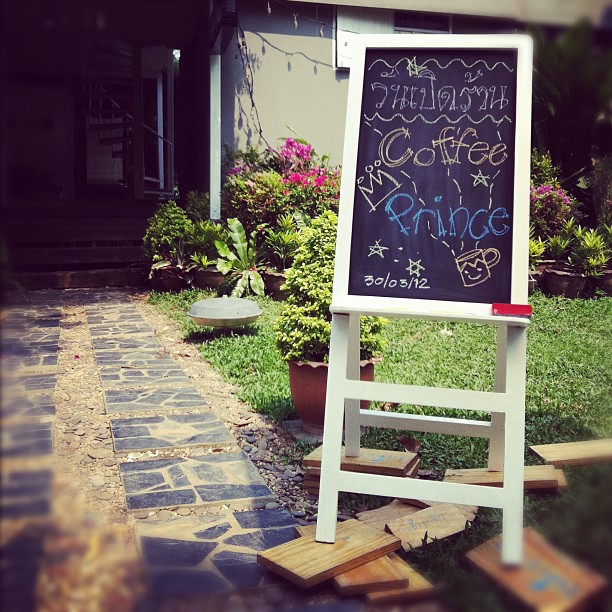 วันเปิดร้าน
Coffee
Prince
30/03/12